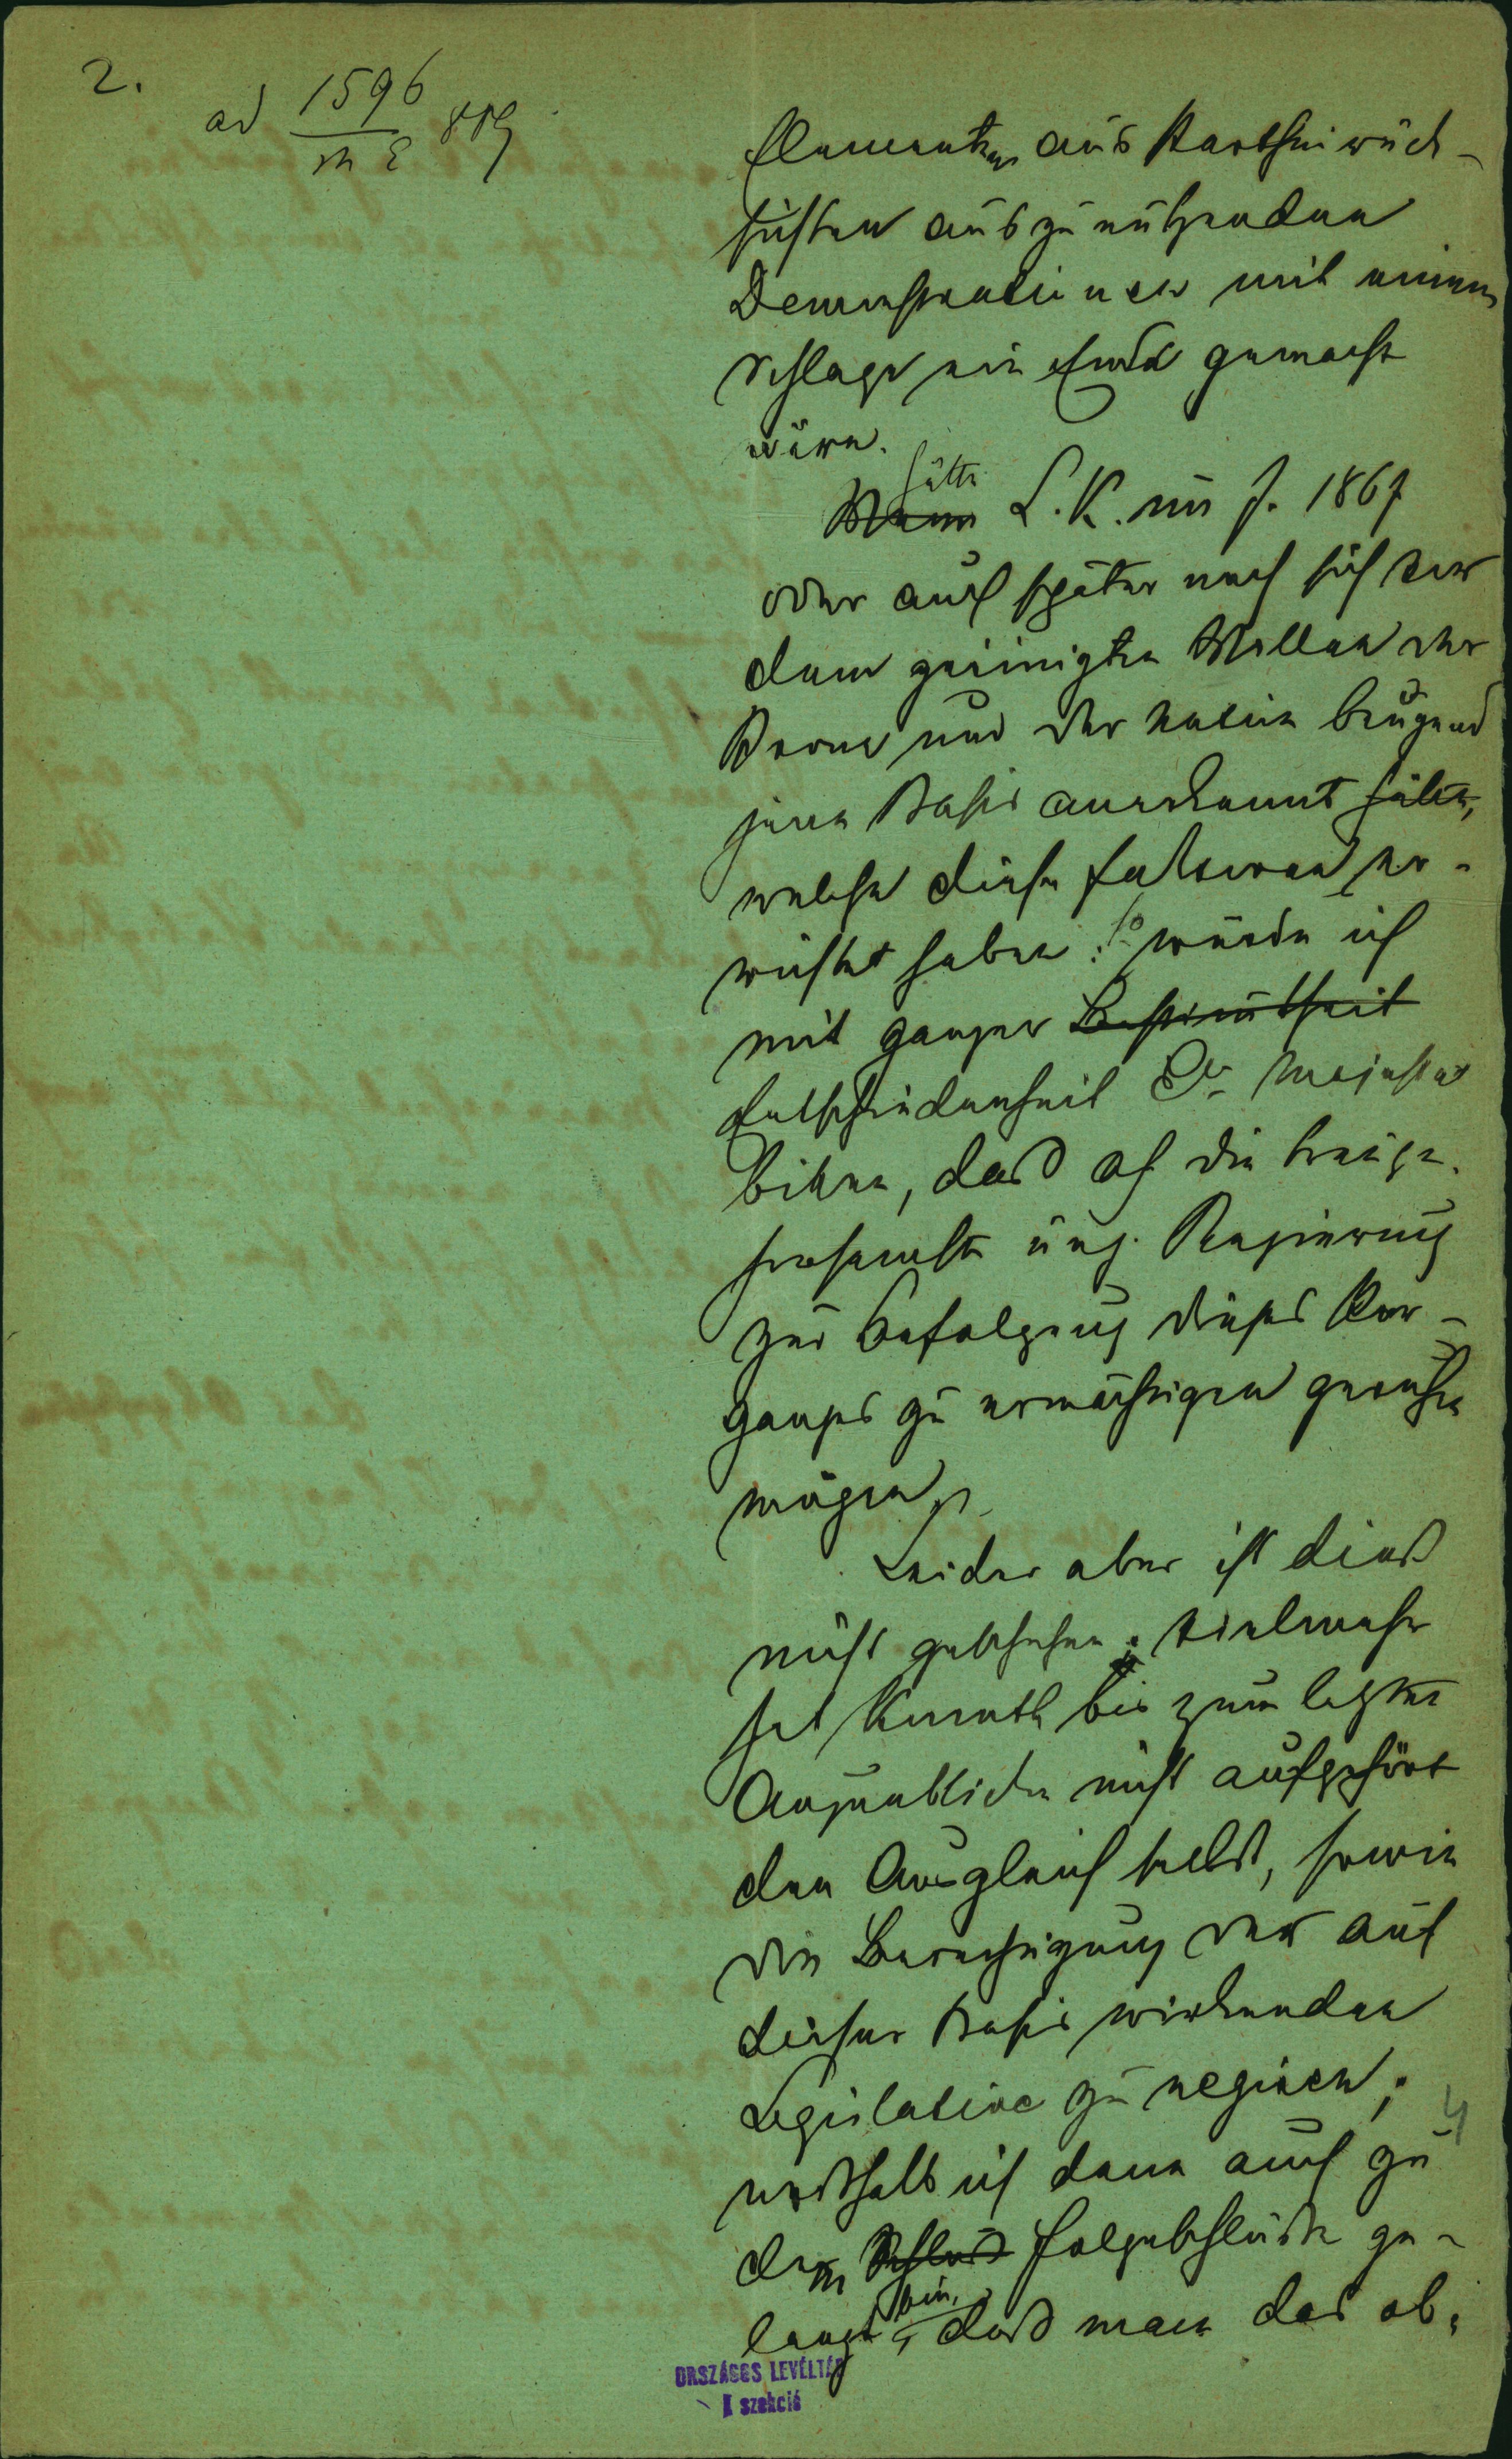 2.
ad 1596 / M E 889
Elementen aus Parthei rück-
sichten auszunützenden
Demonstrationen mit einem
Schlage ein Ende gemacht
wäre.
hätte
Wenn L. K. im J. 1867
oder auch später noch sich vor
dem geeinigten Willen der
Krone und der Nation beugend
jene Basis anerkannt hätte,
welche diese Faktoren er-
richtet haben: so würde ich
mit ganzer Bestimmtheit
Entschiedenheit Ew Majestät
bitten, daß ah die treuge-
horsamste ung. Regierung
zur Befolgung dieses Vor-
ganges zu ermächtigen geruhen
mögen.
Leider aber ist dies
nicht geschehen; vielmehr
hat Kossuth bis zum letzten
Augenblicke nicht aufgehört
den Ausgleich selbst, sowie
die Berechtigung der auf
dieser Basis wirkenden
Legislative zu negieren;
4
weshalb ich dann auch zu
dem Schluß Folgeschluße ge-
bin,
langt, daß man das ob-
ORSZÁGOS LEVÉLTÁR
I szekció